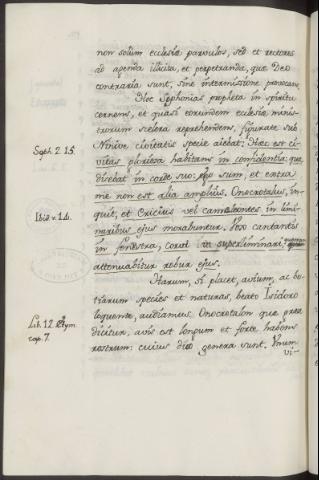 non solum ecclesiæ parvulos, sed et rectores
ad agenda illicita, et perpetranda, quæ Deo
contraria sunt, sine intermissione provocare.
Hoc Sophonias propheta in spiritu
cernens, et quasi eorundem ecclesiæ minis-
trorum scelera reprehendens, figurate sub
Ninive civitatis specie aiebat: Hæc est ci-
Soph. 2. 15.
vitas gloriosa habitans in confidentia: quæ
dicebat in corde suo: ego sum, et extra
me non est alia amplius. Onocrotalus, in-
quit, et Ericius vel camaleontes in limi-
Ibid. v. 14.
naribus ejus morabuntur. Vox cantantis
in fenestra, corvus in superliminari:
attenuabitur robur ejus.
Harum, si placet, avium, ac bes-
tiarum species et naturas, beato Isidoro
loquente, audiamus. Onocrotalon quæ græce
Lib. 12. Etym.
dicitur, avis est longum et forte habens
cap. 7.
rostrum: cuius duo genera sunt. Unum
vi-